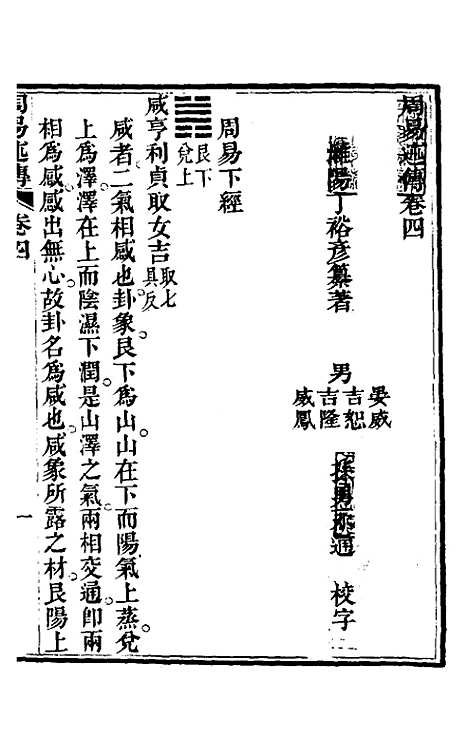 周易述傳卷四
濰陽丁裕彥纂著
男
晏威
吉恕
吉隆
威鳳
校字
周易下經
艮下
兌上
咸亨利貞取女吉取七具反
咸者二氣相感也卦象艮下為山山在下而陽氣上蒸兌
上為澤澤在上而陰濕下潤是山澤之氣兩相交通卽兩
相為感感出無心故卦名為咸也咸象所露之材艮陽上
周易述傳
卷四
一